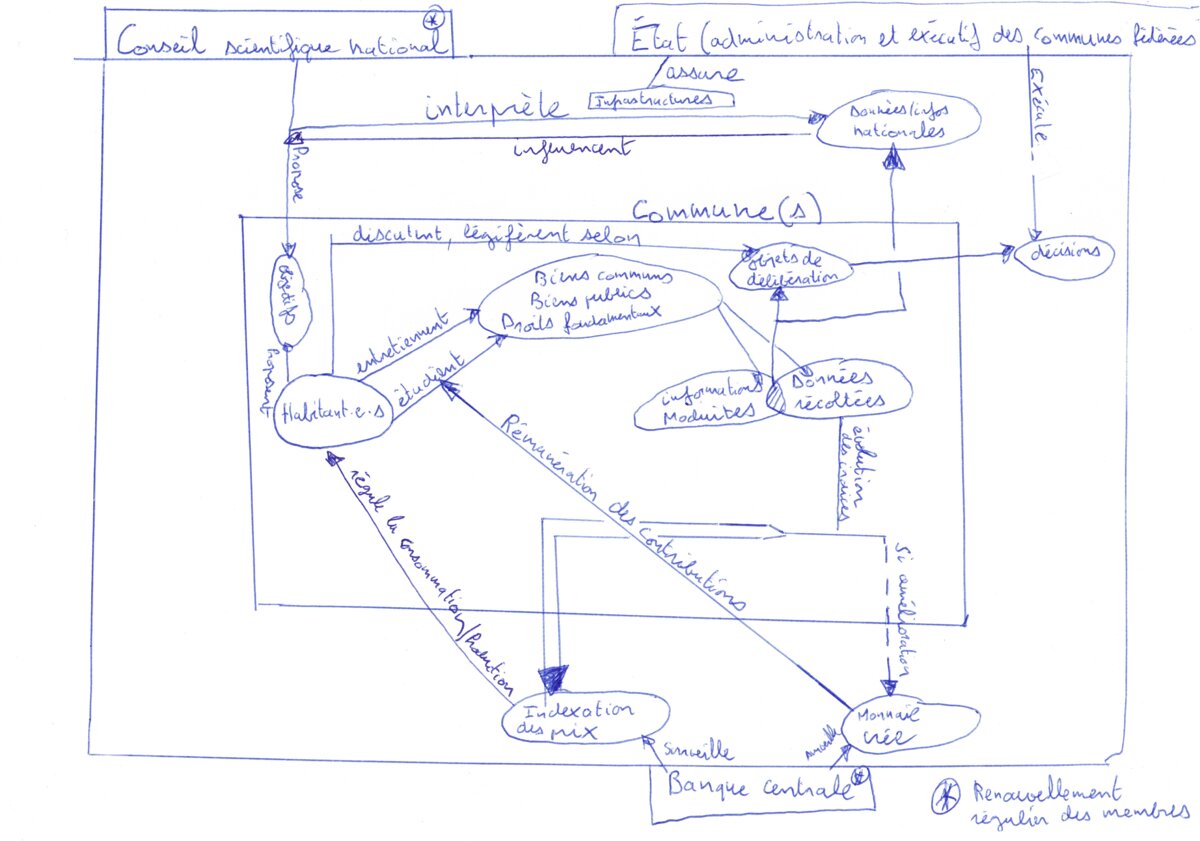 Conseil scientifique national *
État (administration et exécutif des communes fédérées
assure
Infrastructures
interprète
influencent
Données/infos
nationales
Exécute
Propose
Commune(s)
discutent, légifèrent selon
objets de
délibération
décisions
objectifs
Biens communs
Biens publics
Droits fondamentaux
entretiennent
étudient
Proposent
Habitant·e·s
informations
Données
récoltées
évolution
des indices
Rémunération des contributions
régule la consommation/Production
Si amélioration
Indexation
des prix
Monnaie
créée
Surveille
surveille
Banque centrale *
* Renouvellement
régulier des membres